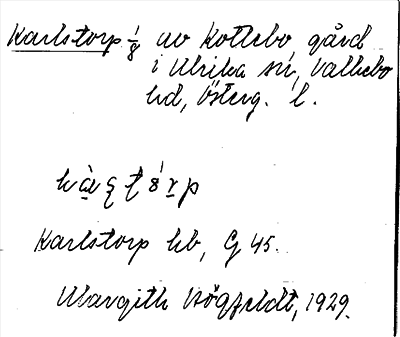 Karlstorp 1/8 av Kottebo, gård
i Ulrika sn, Valkebo
hd, Österg. l.
Karlstorp hb, G 45.
Margith Högfeldt, 1929.